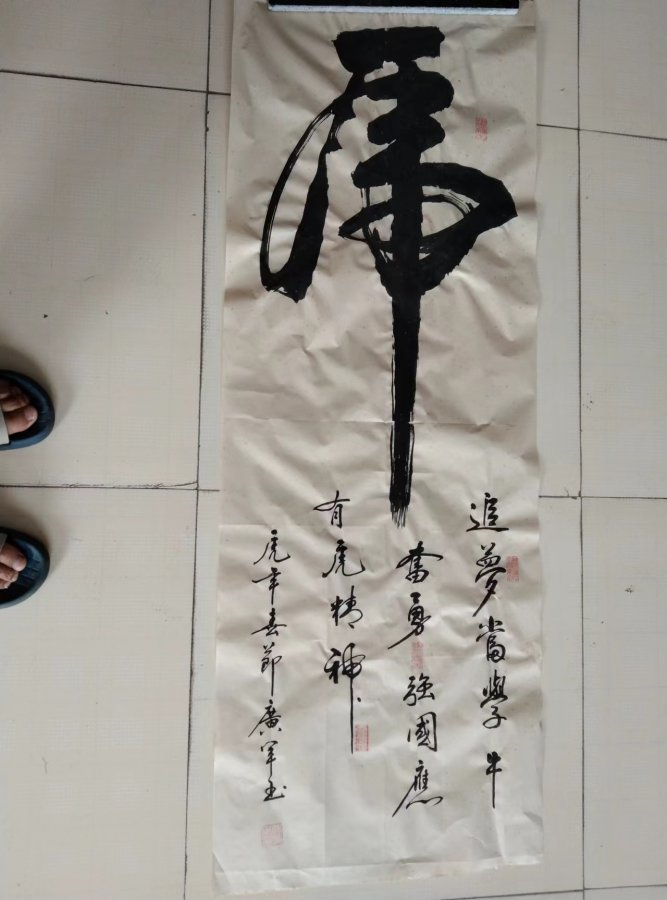 虎
追夢當學牛
奮勇強國應
有虎精神
虎年春節廣軍